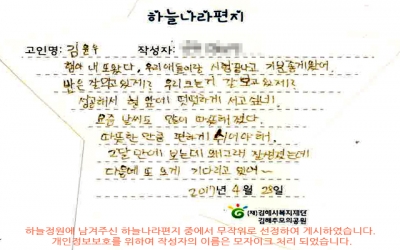 하늘나라편지
고인명: 김 우 작성자:
형아 내 또왔다. 우리 애들이랑 시험끝나고 기분좋게왔어.
밥은 잘먹고 있게? 우리 크는거 잘 보고있게?
성공해서 형 앞에 떳떳하게 서고싶네!
요즘 날씨도 많이 따뜻해졌다.
따뜻한 만큼 편하게 쉬어야해.
2달 만에 보는데 왜그래 잘생겼는데
다음에 또 오게 기다리고 있어~
2017년 4월 28일
(재)김해시복지재단
김해추모의공원
하늘정원에 남겨주신 하늘나라편지 중에서 무작위로 선정하여 게시하였습니다.
개인정보보호를 위하여 작성자의 이름은 모자이크 처리 되었습니다.